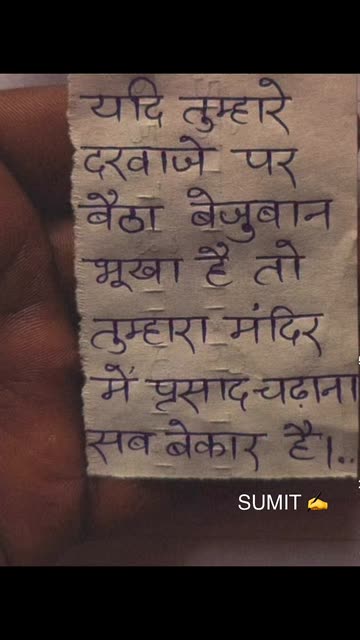 यदि तुम्हारे
दरवाजे पर
बैठा बेजुबान
भूखा है तो
तुम्हारा मंदिर
में प्रसाद चढ़ाना
सब बेकार है।..
SUMIT ✍️